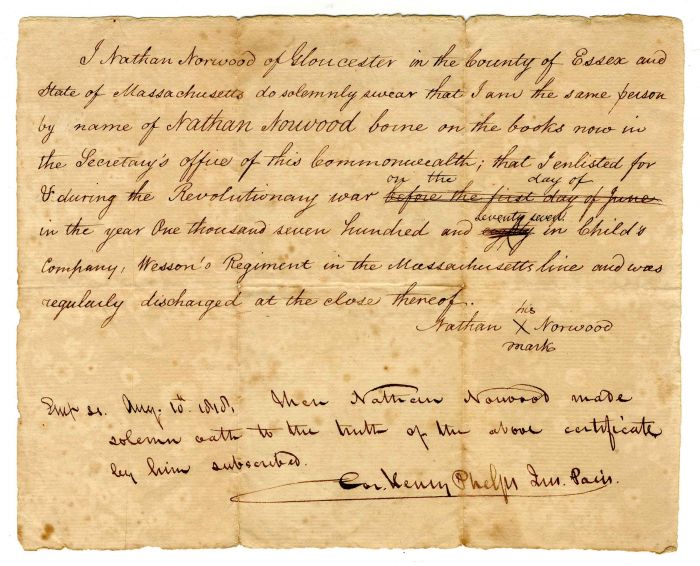 I Nathan Norwood of Gloucester in the County of Essex and
State of Massachusetts do solemnly swear that I am the same person
by name of Nathan Norwood borne on the books now in
the Secretary's office of this Commonwealth; that I enlisted for
on the day of
& during the Revolutionary war before the first day of June
seventy seven
in the year One thousand seven hundred and eighty in Child's
Company, Wesson's Regiment in the Massachusetts line and was
regularly discharged at the close thereof.
his
Nathan X Norwood
mark
Aug. 10th 1818. Then Nathan Norwood made
solemn oath to the truth of the above certificate
by him subscribed.
Henry Phelps Jus. Pacis.